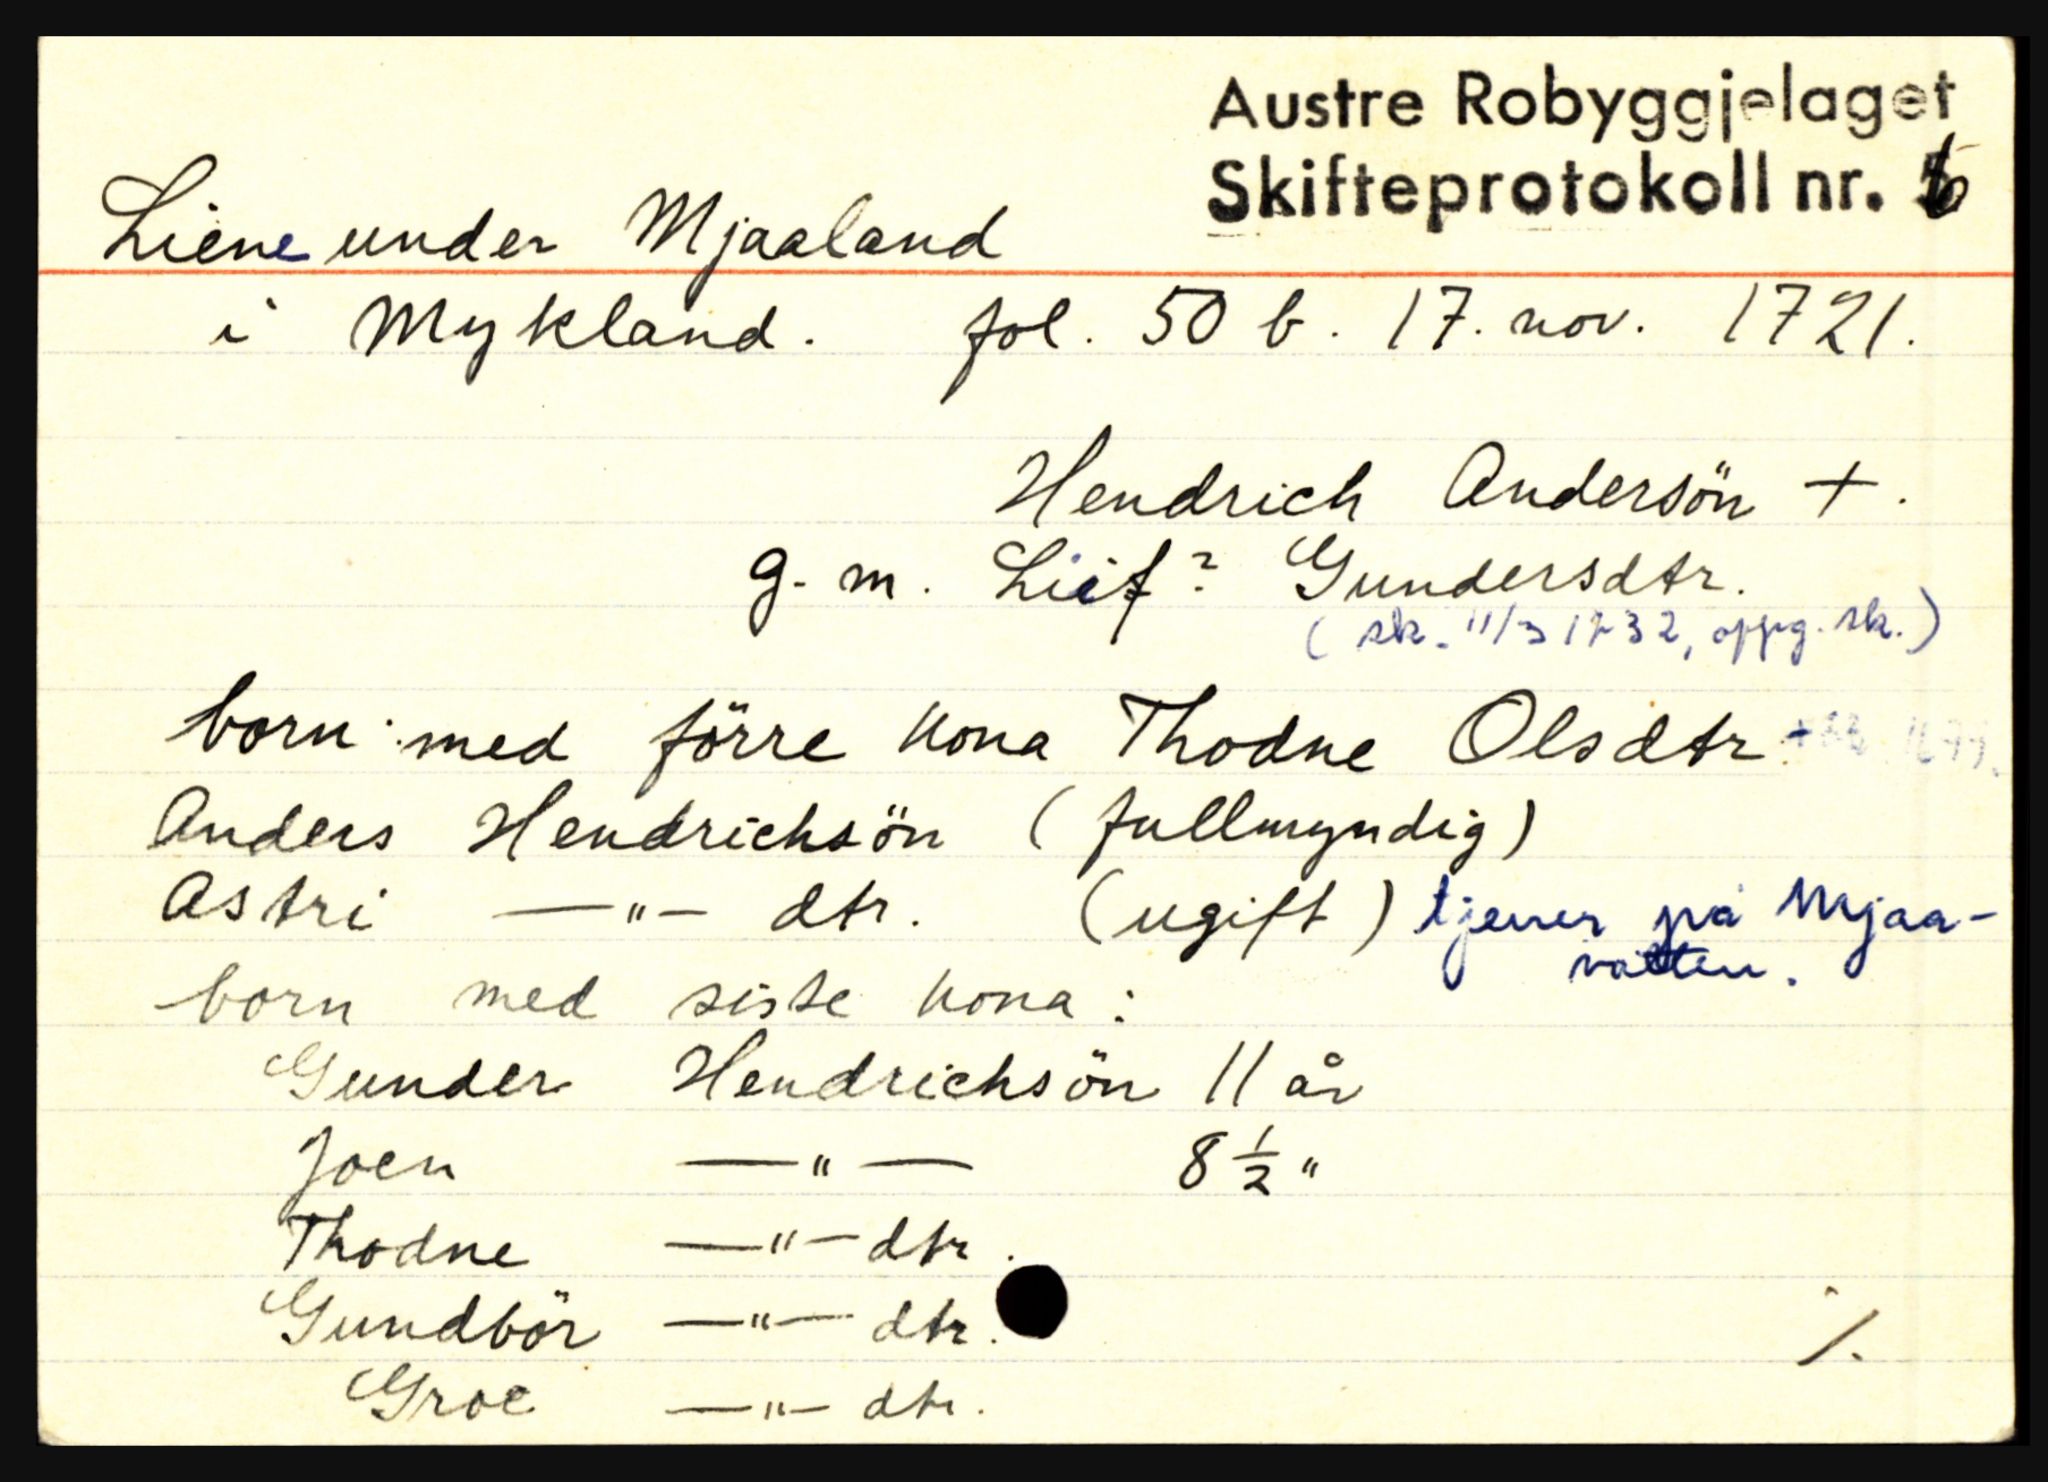 Austre Robyggjelaget
Skifteprotokoll nr.
Liene under Mjaaland
i Mykland. fol. 50 b. 17. nov. 1721.
Hendrich Andersön +.
g. m. Liif? Gundersdtr.
(sk. 11/3 1732, oppg. sk.)
born med förre kona Thodne Olsdtr
Anders Hendrichsön (fullmyndig)
Astri —"— dtr. (ugift) tjener på Mjaa-
vatten.
born med siste kona:
Gunder Hendrichsön 11 år
Joen —"— 8 1/2 "
Thodne —"— dtr.
Gundbör —"— dtr.
Groe —"— dtr.